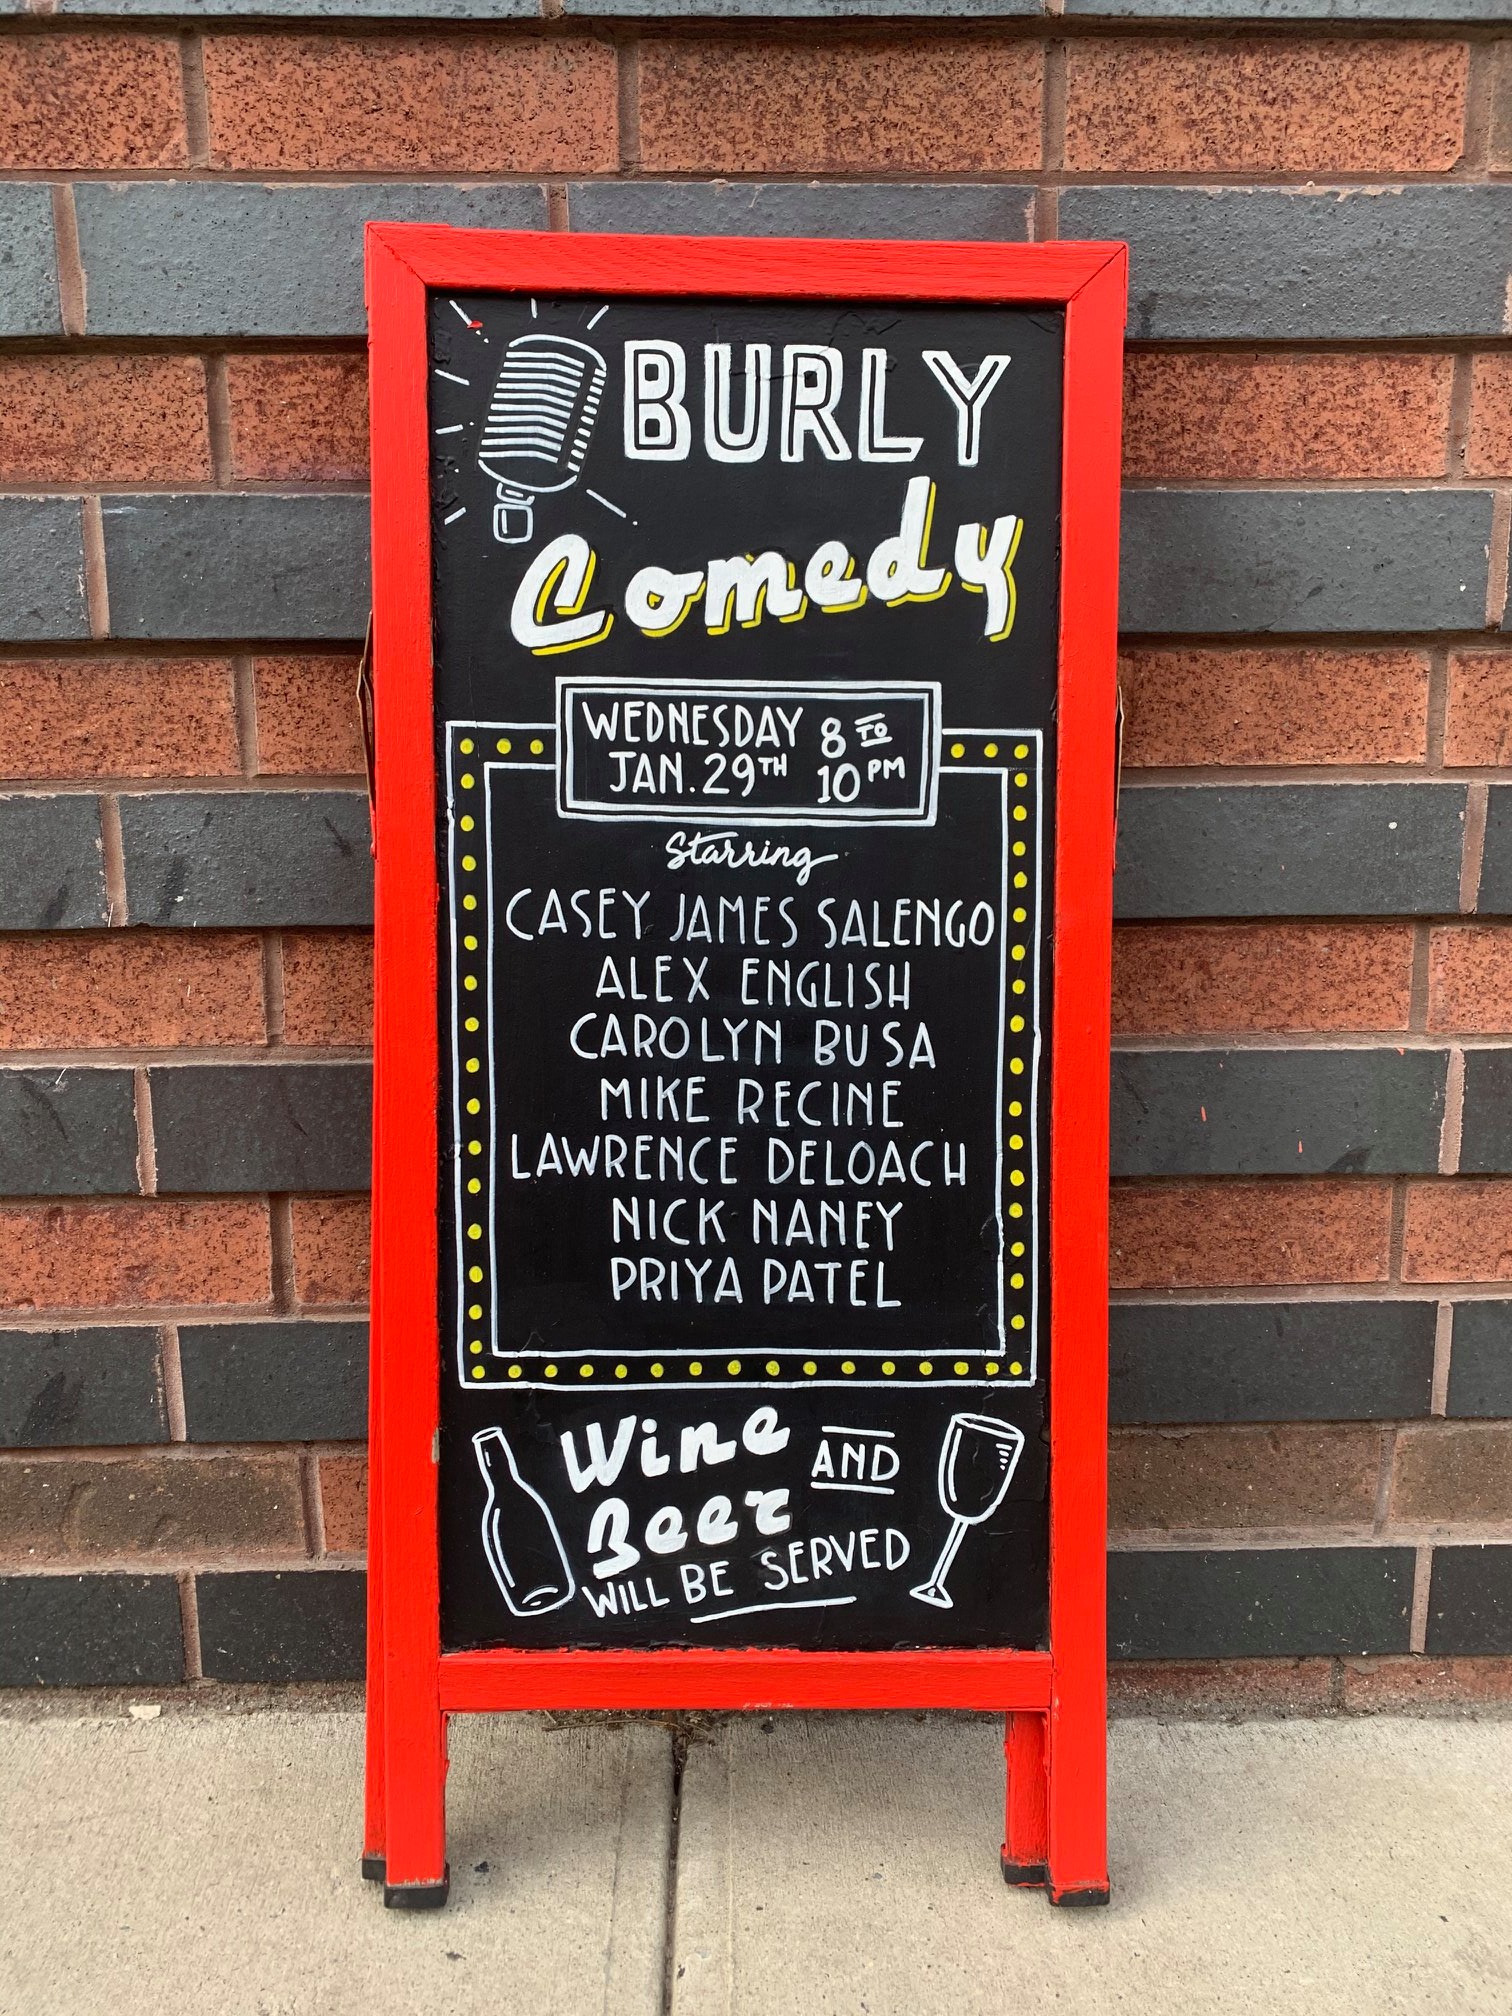 BURLY
Comedy
WEDNESDAY 8 TO
JAN. 29TH 10 PM
Starring
CASEY JAMES SALENGO
ALEX ENGLISH
CAROLYN BUSA
MIKE RECINE
LAWRENCE DELOACH
NICK NANEY
PRIYA PATEL
Wine AND
Beer
WILL BE SERVED